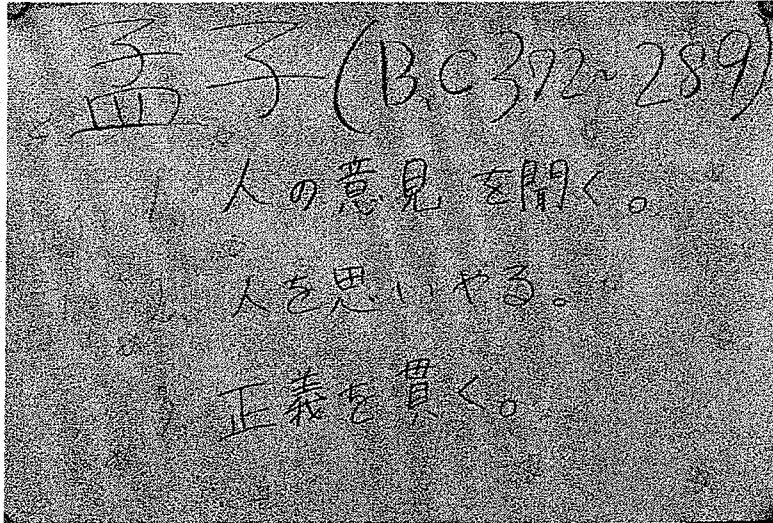 孟子(B.C372~289)
1 人の意見を聞く。
2 人を思いやる。
3 正義を貫く。